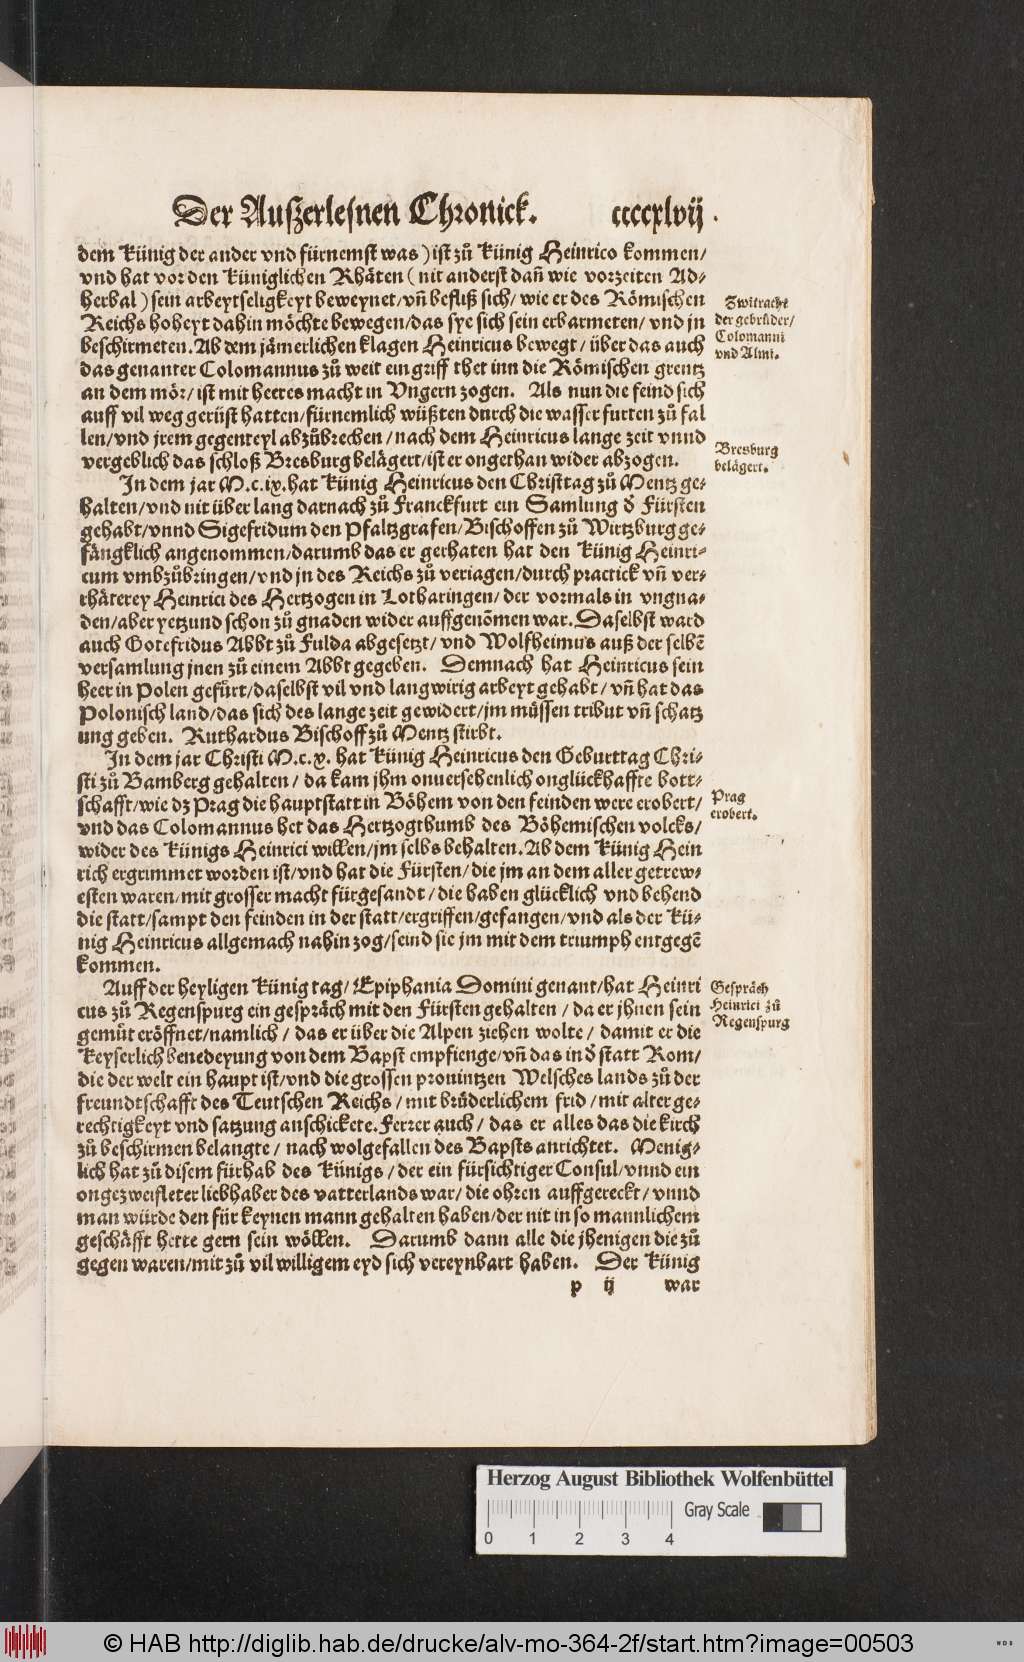 Der Außerlesnen Chronick. ccccxlvij.
dem Künig der ander vnd fürnemst was) ist zů Künig Heinrico kommen/
vnd hat vor den Küniglichen Rhäten (nit anderst dañ wie vorzeiten Ad-
herbal) sein arbeytseligkeyt beweynet/vñ befliß sich/wie er des Römischen
Reichs hoheyt dahin möchte bewegen/das sye sich sein erbarmeten/vnd jn
beschirmeten. Ab dem jämerlichen klagen Heinricus bewegt/über das auch
das genanter Colomannus zů weit ein griff thet inn die Römischen grentz
an dem mör/ist mit heeres macht in Vngern zogen. Als nun die feind sich
auff vil weg gerüst hatten/fürnemlich wüßten durch die wasser furten zů fal
len/vnd jrem gegenteyl abzůbrechen/nach dem Heinricus lange zeit vnnd
vergeblich das schloß Bresburg belägert/ist er ongethan wider abzogen.
Zwitracht
der gebrüder/
Colomanni
vnd Almi.
Bresburg
belägert.
In dem jar M.c.ix. hat Künig Heinricus den Christtag zů Mentz ge-
halten/vnd nit über lang darnach zů Franckfurt ein Samlung d̕ Fürsten
gehabt/vnnd Sigefridum den Pfaltzgrafen/Bischoffen zů Wirtzburg ge-
fängklich angenommen/darumb das er gerhaten hat den Künig Heinri-
cum vmbzůbringen/vnd jn des Reichs zů veriagen/durch practick vñ ver-
rhäterey Heinrici des Hertzogen in Lotharingen/der vormals in vngna-
den/aber yetzund schon zů gnaden wider auffgenõmen war. Daselbst ward
auch Gotefridus Abbt zů Fulda abgesetzt/vnd Wolfheimus auß der selbẽ
versamlung jnen zů einem Abbt gegeben. Demnach hat Heinricus sein
heer in Polen gefürt/daselbst vil vnd langwirig arbeyt gehabt/vñ hat das
Polonisch land/das sich des lange zeit gewidert/jm müssen tribut vñ schatz
ung geben. Ruthardus Bischoff zů Mentz stirbt.
In dem jar Christi M.c.x. hat Künig Heinricus den Geburttag Chri-
sti zů Bamberg gehalten/da kam jhm onuersehenlich onglückhaffte bott-
schafft/wie dz Prag die hauptstatt in Böhem von den feinden were erobert/
vnd das Colomannus het das Hertzogthumb des Böhemischen volcks/
wider des Künigs Heinrici willen/jm selbs behalten. Ab dem Künig Hein
rich ergrimmet worden ist/vnd hat die Fürsten/die jm an dem aller getrew-
esten waren/mit grosser macht fürgesandt/die haben glücklich vnd behend
die statt/sampt den feinden in der statt/ergriffen/gefangen/vnd als der Kü-
nig Heinricus allgemach nahin zog/seind sie jm mit dem triumph entgegẽ
kommen.
Prag
erobert.
Auff der heyligen Künig tag/Epiphania Domini genant/hat Heinri
cus zů Regenspurg ein gespräch mit den Fürsten gehalten/da er jhnen sein
gemüt eröffnet/namlich/das er über die Alpen ziehen wolte/damit er die
Keyserlich benedeyung von dem Bapst empfienge/vñ das in d̕ statt Rom/
die der welt ein haupt ist/vnd die grossen prouintzen Welsches lands zů der
freundtschafft des Teutschen Reichs/mit brüderlichem frid/mit alter ge-
rechtigkeyt vnd satzung anschickete. Ferrer auch/das er alles das die kirch
zů beschirmen belangte/nach wolgefallen des Bapsts anrichtet. Menig-
lich hat zů disem fürhab des Künigs/der ein fürsichtiger Consul/vnnd ein
ongezweifleter liebhaber des vatterlands war/die ohren auffgereckt/vnnd
man würde den für keynen mann gehalten haben/der nit in so mannlichem
geschäfft hette gern sein wöllen. Darumb dann alle die jhenigen die zů
gegen waren/mit zů vil willigem eyd sich vereynbart haben. Der Künig
Gespräch
Heinrici zů
Regenspurg
p ij war
Herzog August Bibliothek Wolfenbüttel
0 1 2 3 4 Gray Scale
© HAB http://diglib.hab.de/drucke/alv-mo-364-2f/start.htm?image=00503